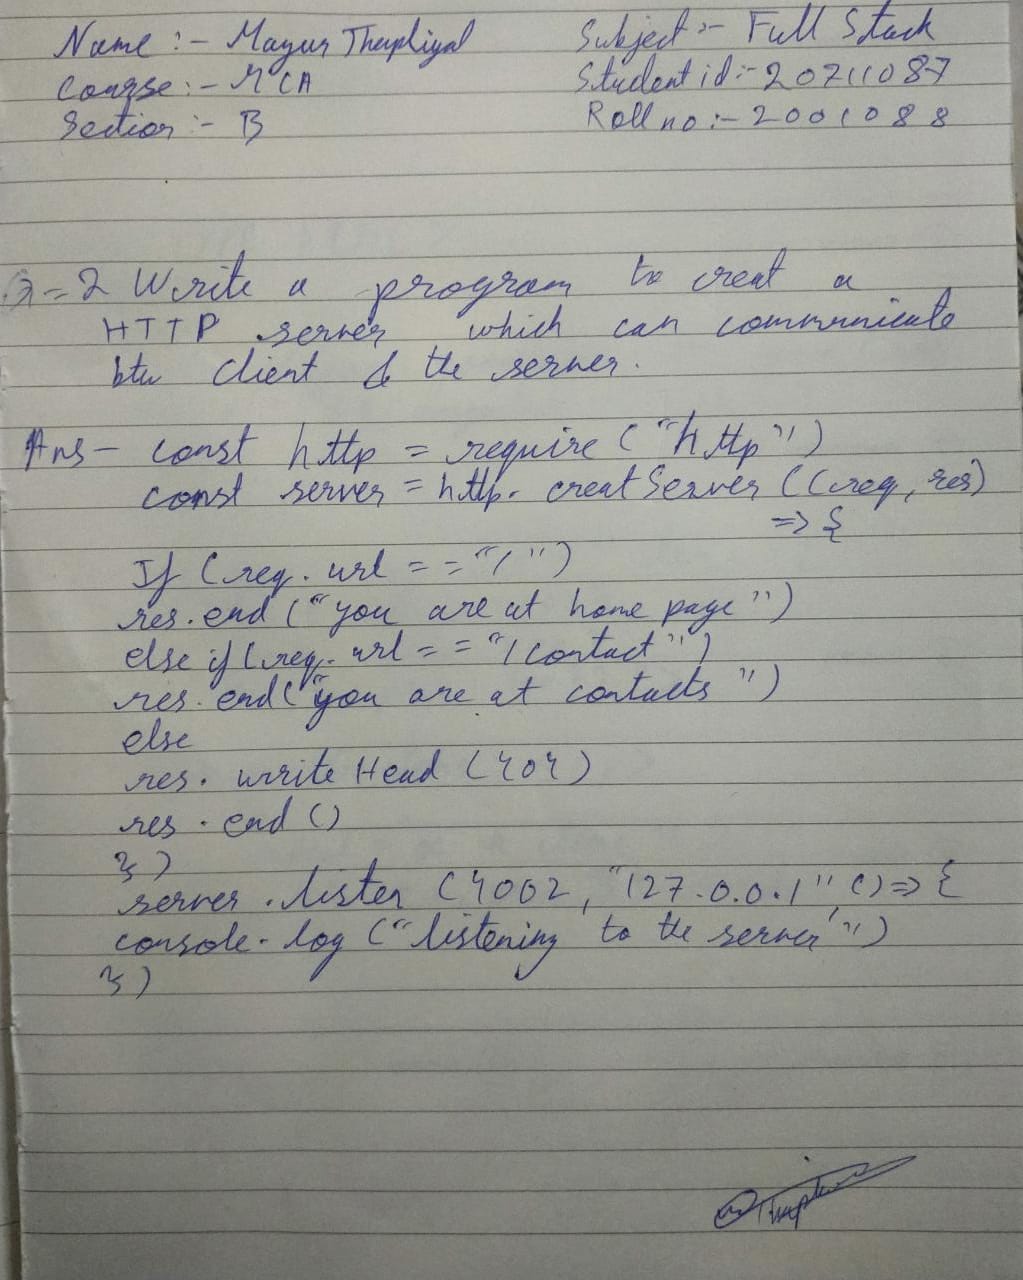 Name :- Mayur Thapliyal Subject :- Full Stack
Course :- MCA Student id :- 20711087
Section :- B Roll no :- 2001088
Q=2 Write a program to creat a
HTTP server which can communicate
btw client & the server.
Ans - const http = require ("http")
const server = http. creatServer ((req, res)
=> {
If (req. url == "/")
res. end ("you are at home page")
else if (req. url == "/contact")
res. end ("you are at contacts")
else
res. write Head (404)
res. end ()
})
server . listen (4002, "127.0.0.1", () => {
console. log ("listening to the server")
})